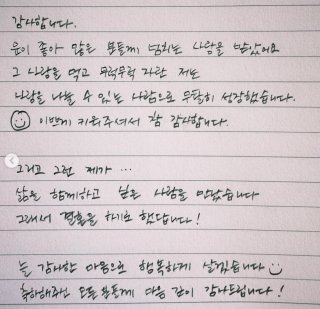 감사합니다.
운이 좋아 많은 분들께 넘치는 사랑을 받았어요
그 사랑을 먹고 무럭무럭 자란 저는
사랑을 나눌 수 있는 사람으로 무탈히 성장했습니다.
이쁘게 키워주셔서 참 감사합니다.
그리고 그런 제가 ...
삶을 함께하고 싶은 사람을 만났습니다
그래서 결혼을 하기로 했답니다!
늘 감사한 마음으로 행복하게 살겠습니다
축하해주신 모든 분들께 마음 깊이 감사드립니다!